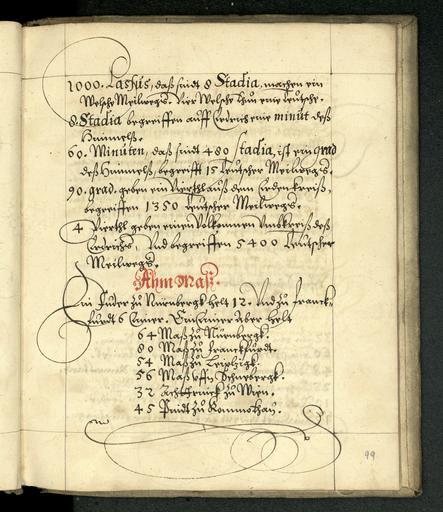 1000. Passus, daß sindt 8 Stadia, machen ein
Welsche Meilwegs. Vier Welsche thun eine teutsche.
8. Stadia begreiffen auff Erdreich eine minut deß
Himmelß.
60. Minuten, daß sindt 480 stadia, ist ein grad
deß Himmelß, begreifft 15 teutscher Meilwegs.
90. grad, geben ein Vierthl auß dem Erdenkreiß,
begreiffen 1350 teutscher Meilwegs.
4 Vierthl geben einen Volkommen Umbkreiß deß
Erdrichs, Und begreiffen 5400 Teutscher
Meilwegs.
Ahm Maß.
Ein Fuder zu Nürnbergk helt 12. Und zu Franck-
furdt 6 Eimer. Ein Eimer aber helt
64 Maß zu Nürnbergk.
80 Maß zu Franckfurdt.
54 Maß zu Leipzigk.
56 Maß uffn Schnebergk.
32 Achttrinck zu Wien.
45 Pindt zu Kommothau.
99